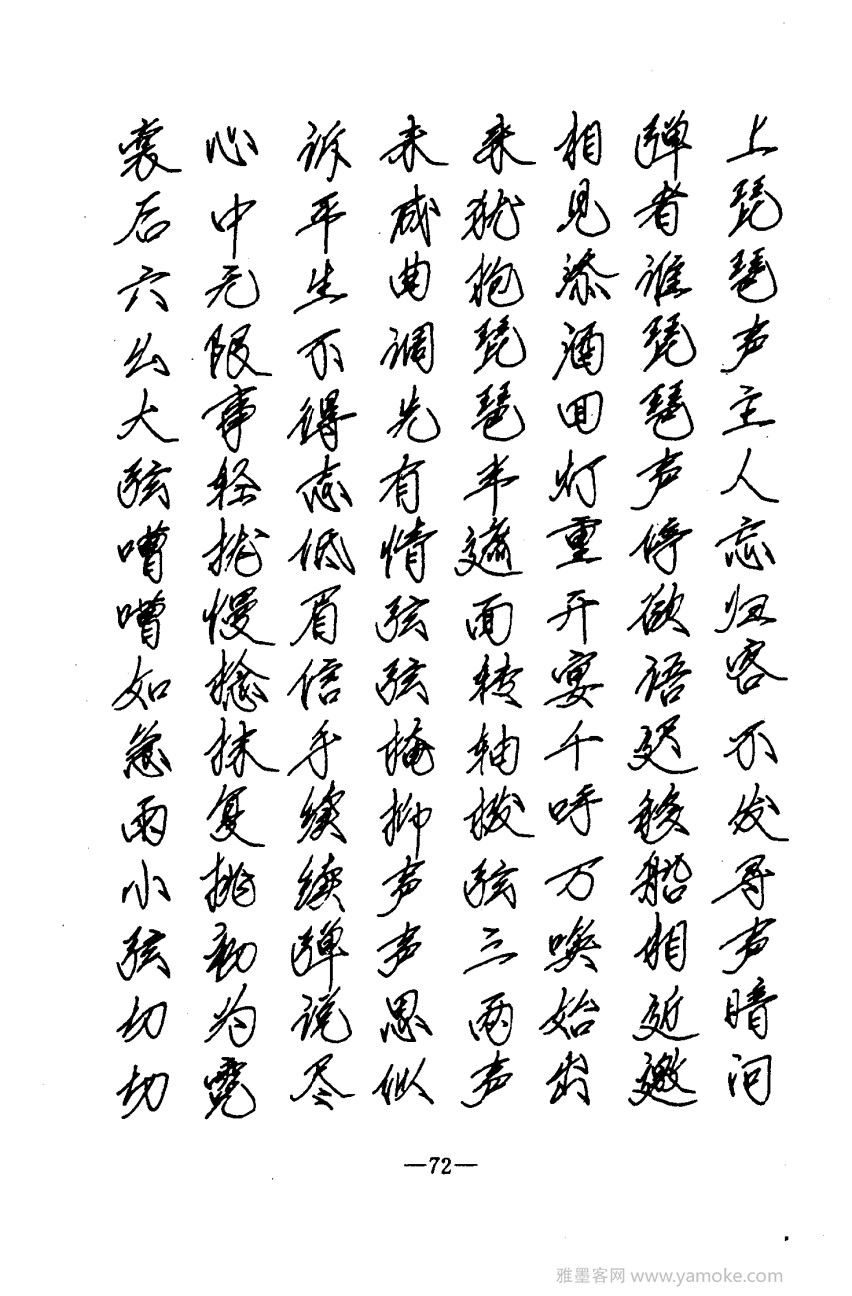 上琵琶声主人忘归客不发寻声暗问
弹者谁琵琶声停欲语迟移船相近邀
相见添酒回灯重开宴千呼万唤始出
来犹抱琵琶半遮面转轴拨弦三两声
未成曲调先有情弦弦掩抑声声思似
诉平生不得志低眉信手续续弹说尽
心中无限事轻拢慢捻抹复挑初为霓
裳后六幺大弦嘈嘈如急雨小弦切切
—72—
雅墨客网 www.yamoke.com